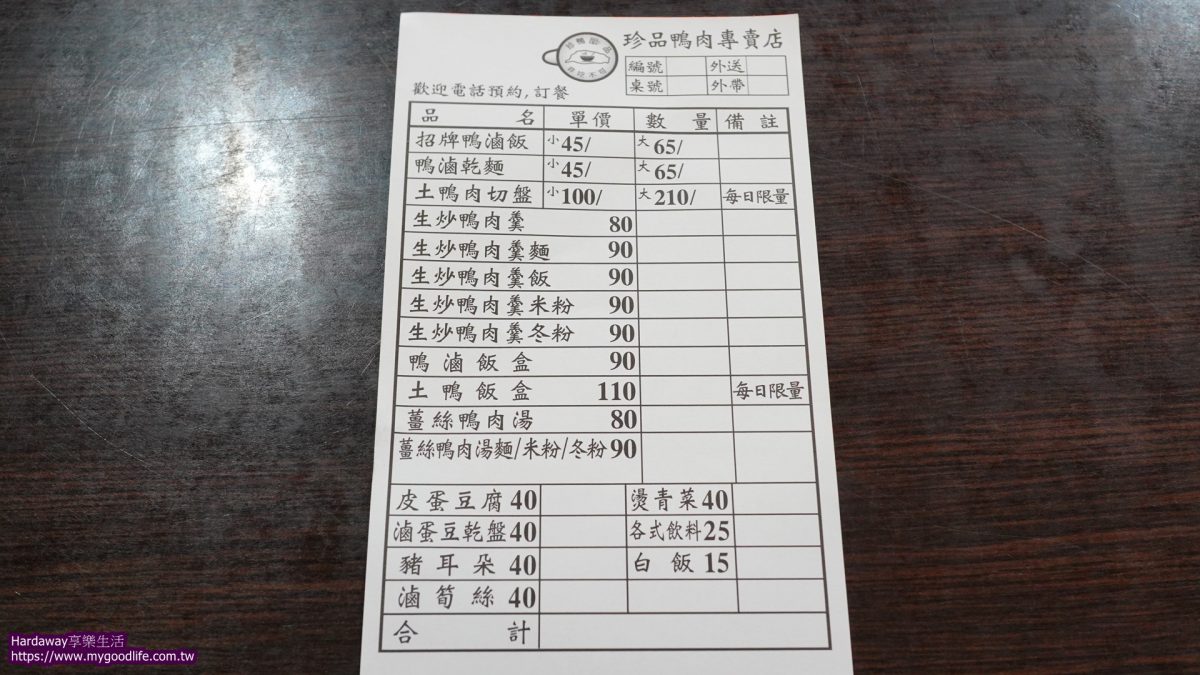 珍品鴨肉專賣店
編號 外送
桌號 外帶
歡迎電話預約,訂餐
品名 單價 數量 備註
招牌鴨滷飯 小45/ 大65/
鴨滷乾麵 小45/ 大65/
土鴨肉切盤 小100/ 大210/ 每日限量
生炒鴨肉羹 80
生炒鴨肉羹麵 90
生炒鴨肉羹飯 90
生炒鴨肉羹米粉 90
生炒鴨肉羹冬粉 90
鴨滷飯盒 90
土鴨飯盒 110 每日限量
薑絲鴨肉湯 80
薑絲鴨肉湯麵/米粉/冬粉 90
皮蛋豆腐 40 燙青菜 40
滷蛋豆乾盤 40 各式飲料 25
豬耳朵 40 白飯 15
滷筍絲 40
合計
Hardaway享樂生活
https://www.mygoodlife.com.tw